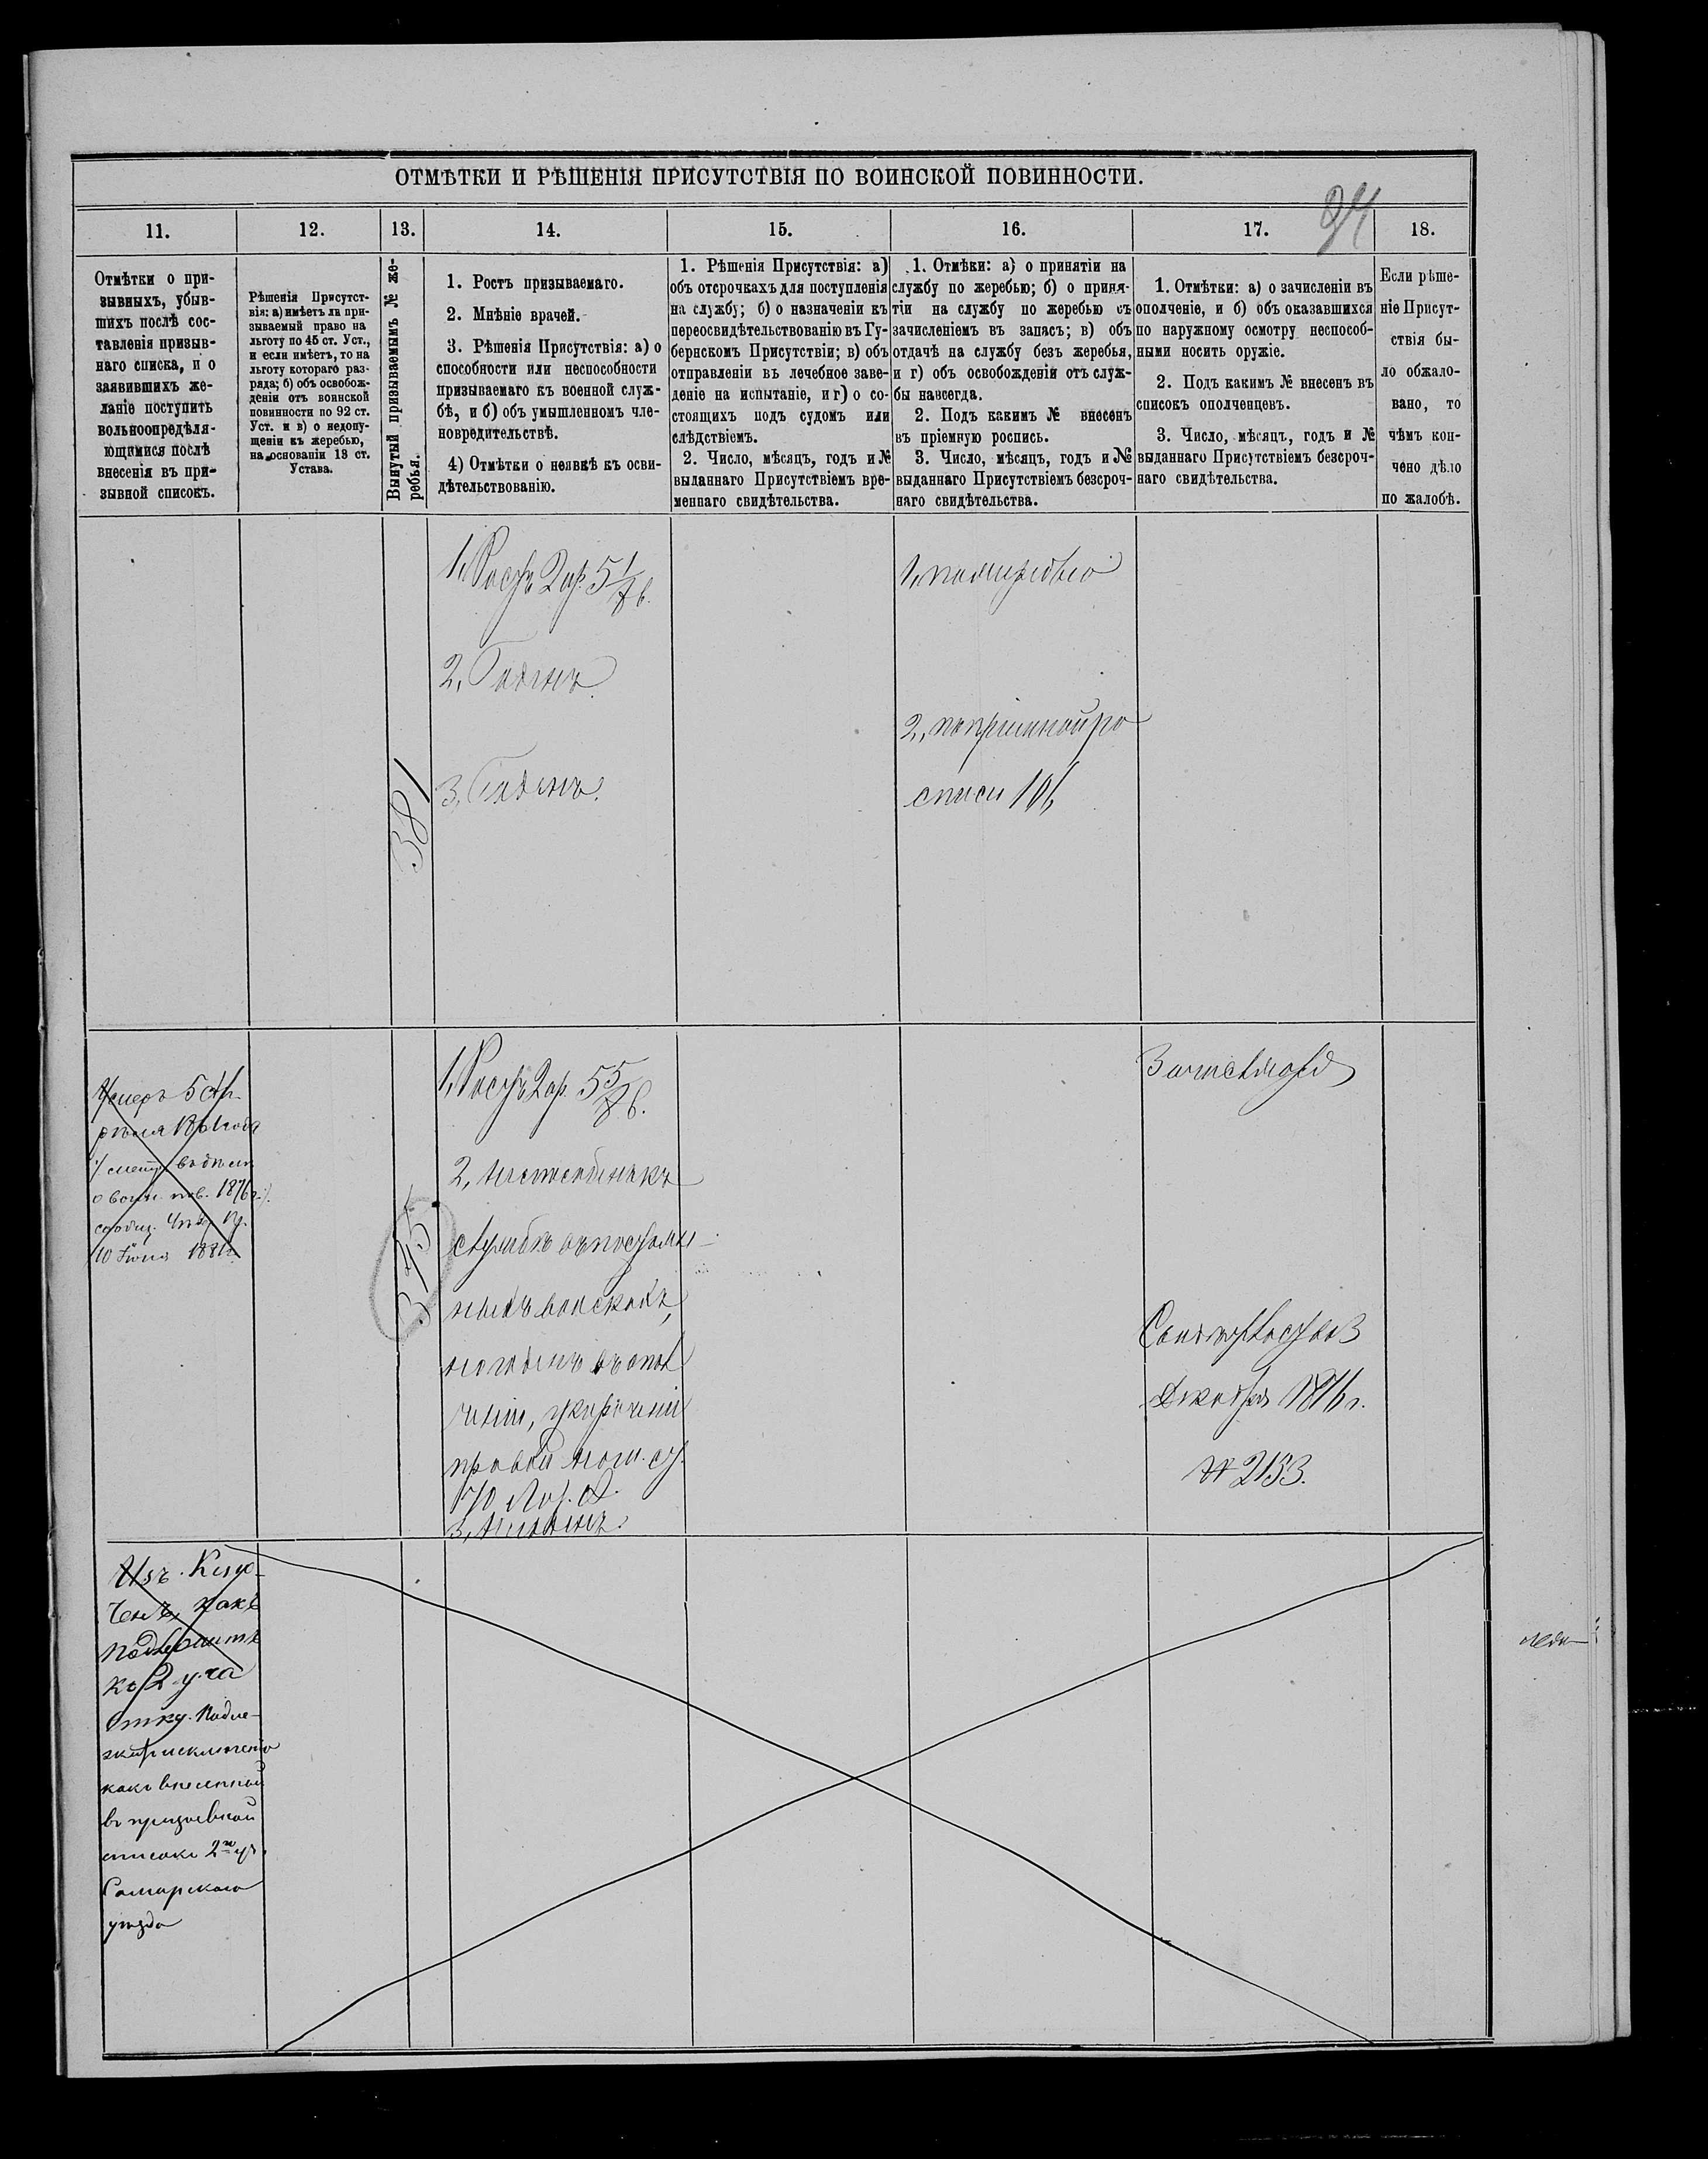 ОТМѢТКИ И РѢШЕНІЯ ПРИСУТСТВІЯ ПО ВОИНСКОЙ ПОВИННОСТИ.
94
11.
12.
13.
14.
15.
16.
17.
18.
Отмѣтки о при-
зывныхъ, убыв-
шихъ послѣ сос-
тавленія призыв-
наго списка, и о
заявившихъ же-
ланіе поступить
вольноопредѣля-
ющимися послѣ
внесенія въ при-
зывной списокъ.
Рѣшенія Присутст-
вія: а) имѣетъ ли при-
зываемый право на
льготу по 45 ст. Уст.,
и если имѣетъ, то на
льготу котораго раз-
ряда; б) объ освобож-
деніи отъ воинской
повинности по 92 ст.
Уст. и в) о недопу-
щеніи къ жеребью,
на основаніи 13 ст.
Устава.
Вынутый призываемымъ № же-
ребья.
1. Ростъ призываемаго.
2. Мнѣніе врачей.
3. Рѣшенія Присутствія: а) о
способности или неспособности
призываемаго къ военной служ-
бѣ, и б) объ умышленномъ чле-
новредительствѣ.
4) Отмѣтки о неявкѣ къ осви-
дѣтельствованію.
1. Рѣшенія Присутствія: а)
объ отсрочкахъ для поступленія
на службу; б) о назначеніи къ
переосвидѣтельствованію въ Гу-
бернскомъ Присутствіи; в) объ
отправленіи въ лечебное заве-
деніе на испытаніе, и г) о со-
стоящихъ подъ судомъ или
слѣдствіемъ.
2. Число, мѣсяцъ, годъ и №
выданнаго Присутствіемъ вре-
меннаго свидѣтельства.
1. Отмѣки: а) о принятіи на
службу по жеребью; б) о приня-
тіи на службу по жеребью съ
зачисленіемъ въ запасъ; в) объ
отдачѣ на службу безъ жеребья,
и г) объ освобожденіи отъ служ-
бы навсегда.
2. Подъ какимъ № внесенъ
въ пріемную роспись.
3. Число, мѣсяцъ, годъ и №
выданнаго Присутствіемъ безсроч-
наго свидѣтельства.
1. Отмѣтки: а) о зачисленіи въ
ополченіе, и б) объ оказавшихся
по наружному осмотру неспособ-
ными носить оружіе.
2. Подъ какимъ № внесенъ въ
списокъ ополченцевъ.
3. Число, мѣсяцъ, годъ и №
выданнаго Присутствіемъ безсроч-
наго свидѣтельства.
Если рѣше-
ніе Присут-
ствія бы-
ло обжало-
вано, то
чѣмъ кон-
чено дѣло
по жалобѣ.
381
1, Ростъ 2 ар. 5 1/8 в.
2, Годенъ
3, Годенъ.
1, по жеребью
2, по пріемной ро
списи 106
Умеръ 5 Ап-
рѣля 1861 года
о воин. пов. 1876 г.
10 Іюня 1881 г.
375
1, Ростъ 2 ар. 5 5/8 в.
2, неспособенъ къ
службѣ въ постоян-
ныхъ войскахъ,
негоденъ въ опол
ченіи, укороченіи
правой ноги. ст.
3, Негоденъ.
Свид.
Декабря 1876 г.
№ 2153.
Изъ. Клю-
ченъ, какъ
подлежитъ
ко 2 уча
стку. Подле-
житъ исключенію
какъ внесенный
въ призывной
списокъ 2го уч.
Самарскаго
уѣзда